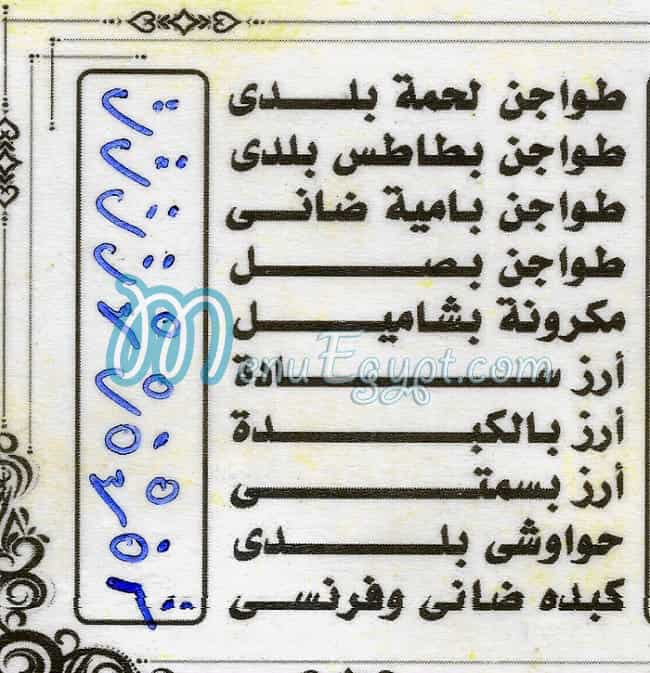 طواجن لحمة بلدى
طواجن بطاطس بلدى
طواجن بامية ضانى
طواجن بصل
مكرونة بشاميل
أرز سادة
أرز بالكبدة
أرز بسمتى
حواوشى بلدى
كبده ضانى وفرنسى
MenuEgypt.com